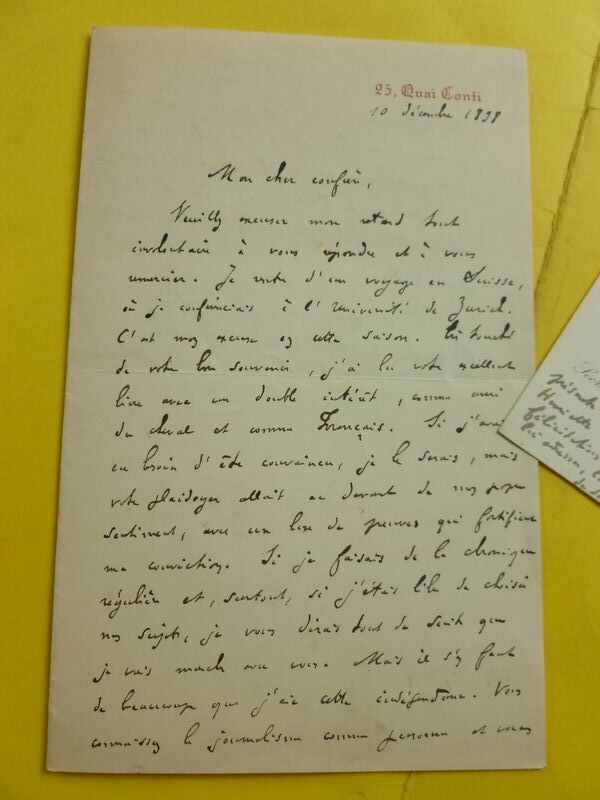 25, Quai Conti
10 décembre 1898
Mon cher confrère,
Veuillez excuser mon retard tout
involontaire à vous répondre et à vous
remercier. Je rentre d'un voyage en Suisse,
où je conférenciais à l'Université de Zurich.
C'est mon excuse en cette saison. Très touché
de votre bon souvenir, j'ai lu votre excellent
livre avec un double intérêt, comme ami
du cheval et comme Français. Si j'avais
eu besoin d'être convaincu, je le serais, mais
votre plaidoyer allait au devant de mon propre
sentiment, avec un luxe de preuves qui fortifient
ma conviction. Si je faisais de la chronique
régulière et, surtout, si j'étais libre de choisir
mes sujets, je vous dirais tout de suite que
je vais marcher avec vous. Mais il s'en faut
de beaucoup que j'aie cette indépendance. Vous
connaissez le journalisme comme personne et vous
Henriette
félicitations